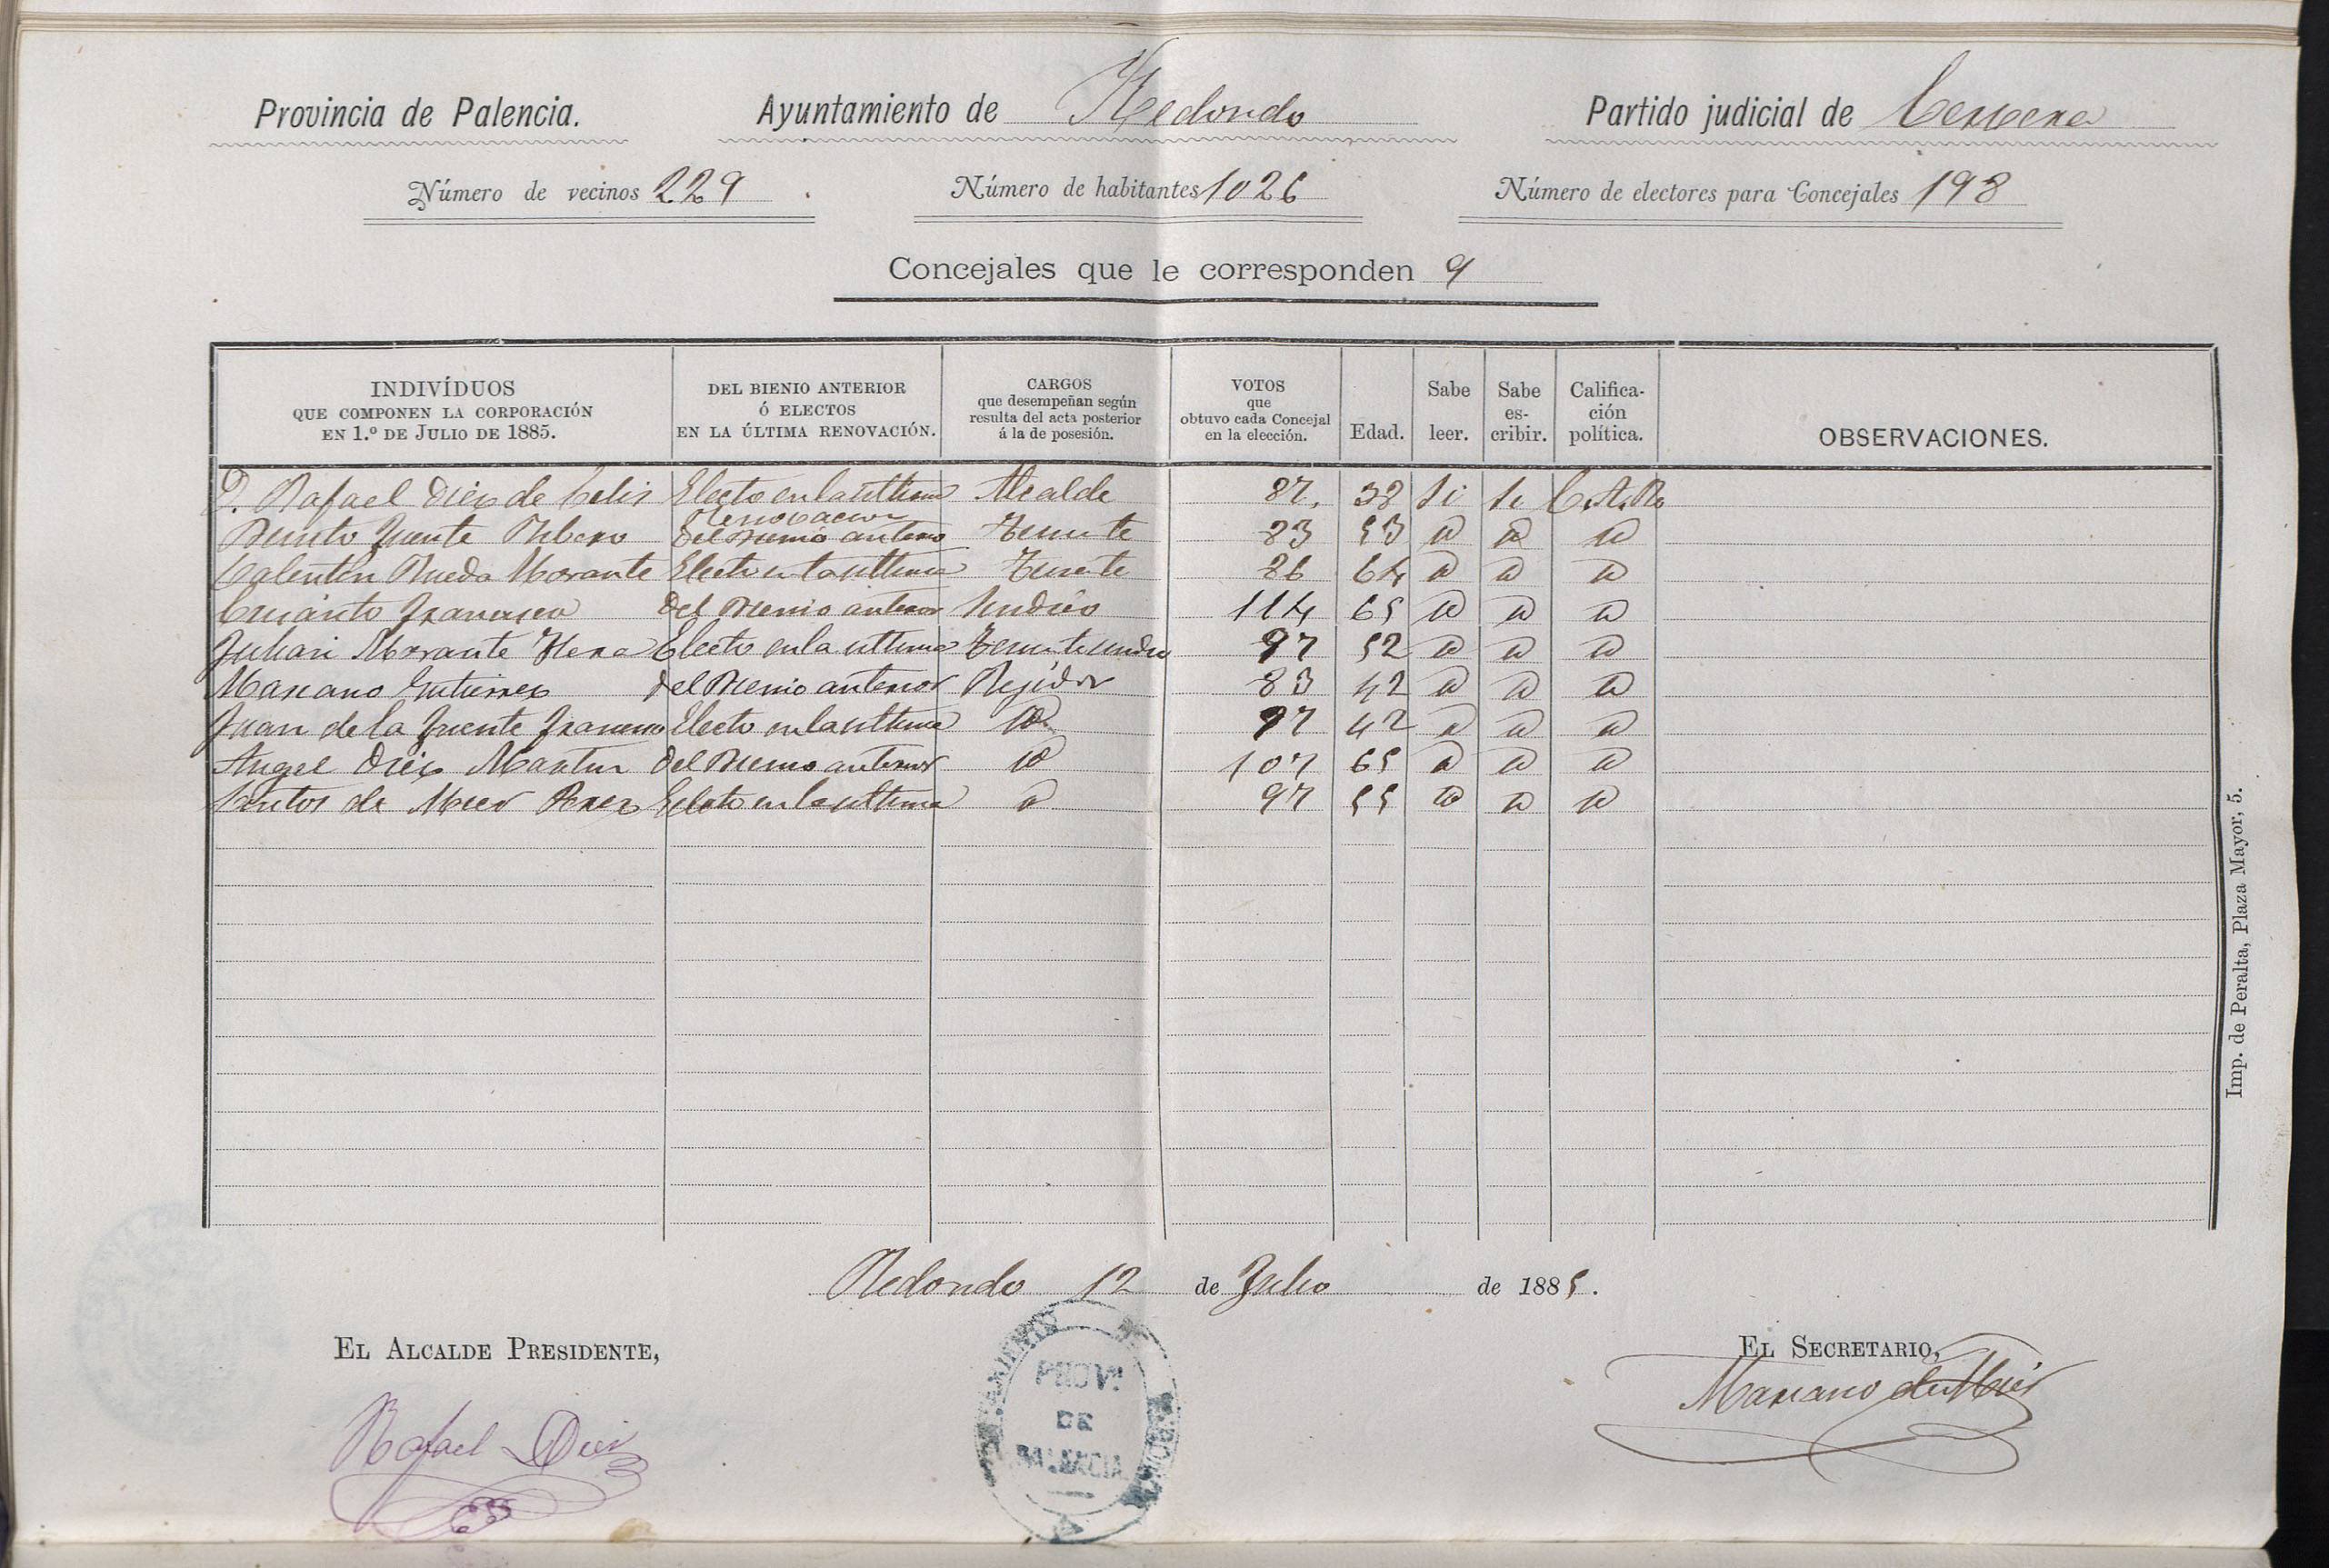 Provincia de Palencia. Ayuntamiento de Redondo Partido judicial de Cervera
Número de vecinos 229 Número de habitantes 1026 Número de electores para Concejales 198
Concejales que le corresponden 9
INDIVÍDUOS QUE COMPONEN LA CORPORACIÓN EN 1.º DE JULIO DE 1885. DEL BIENIO ANTERIOR Ó ELECTOS EN LA ÚLTIMA RENOVACIÓN. CARGOS que desempeñan según resulta del acta posterior á la de posesión. VOTOS que obtuvo cada Concejal en la elección. Edad. Sabe leer. Sabe es-cribir. Califica-ción política. OBSERVACIONES.
D. Rafael Diez de Celis Electo en la ultima Renovacion Alcalde 87. 38 Si Si
Benito Fuente Del Bienio anterior Teniente 83 53 id id id
Valentin Rueda Morante Electo en la ultima Teniente 86 64 id id id
Francisco Del Bienio anterior Sindico 114 65 id id id
Julian Morante Electo en la ultima Teniente sindico 97 52 id id id
Mariano Gutierrez Del Bienio anterior Regidor 83 42 id id id
Juan de la Fuente Francisco Electo en la ultima id 97 42 id id id
Angel Diez Martin Del Bienio anterior id 107 65 id id id
Santos de Mier Perez Electo en la ultima id 97 55 id id id
Redondo 12 de Julio de 1885.
EL ALCALDE PRESIDENTE, EL SECRETARIO,
Rafael Diez Mariano de Mier
PROV.ª
DE
PALENCIA
Imp. de Peralta, Plaza Mayor, 5.